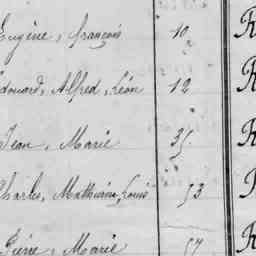 Eugène, françois 10
Edouard, Alfred, Léon 12
Jean, Marie 35
Charles, Mathurin, Louis 53
Pierre, Marie 57